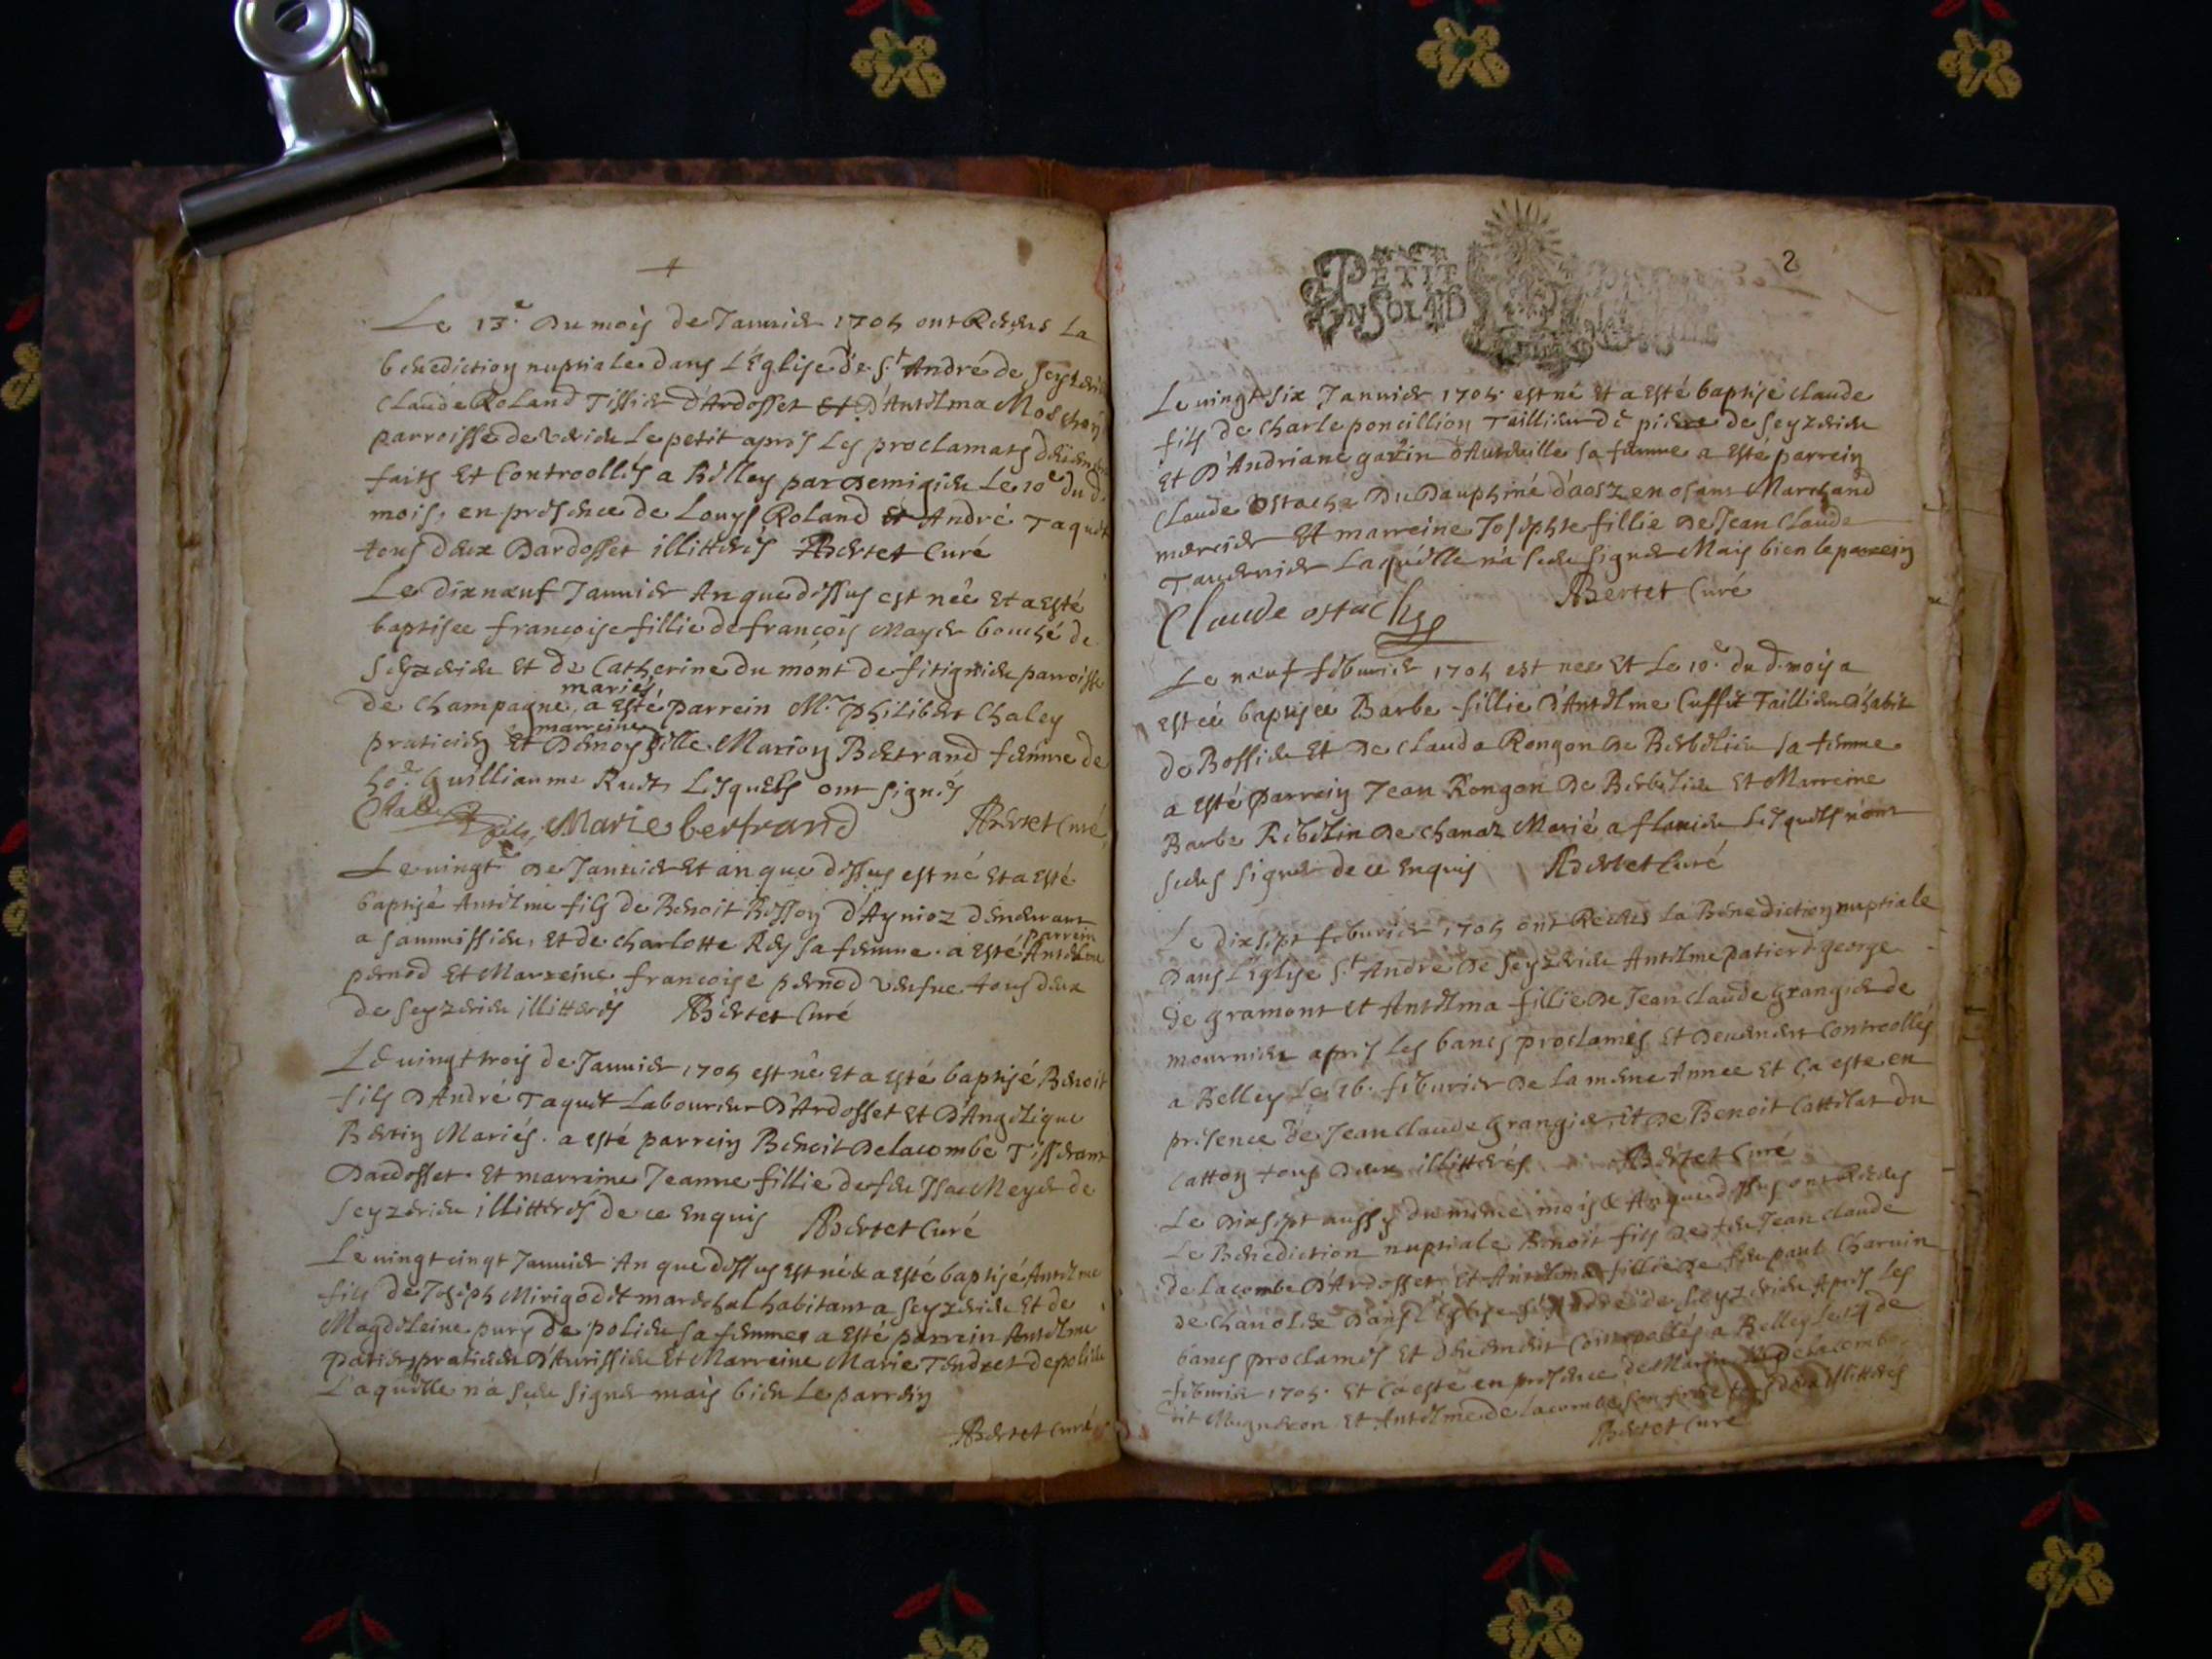 Le 13.e Du mois de Januier 1705 ont Receus La
benediction nuptiale dans L'Eglise de S.t André de Seyzerieu
Claude Roland Tissier d'Ardosset Et d'Antelma
parroisse de Virieu Le petit apres Les proclamats
faits Et Controollés a Belley par Le 10.e du d.
mois, en presence de Louys Roland Et André Taquet
tous deux Dardosset illitterés ABertet Curé
Le dixneuf Januier An que dessus est née Et a Esté
baptisee francoise fillie de francois Mayer bouché de
Seyzerieu Et de Catherine du mont de fitignieu parroisse
mariés
de Champagne, a Esté parrein M.re Philibert Chaley
marreine
praticien Et Marion Bertrand femme de
Guilliaume Lesquels ont signés
Marie bertrand ABertet Curé
Le uingt.e De Januier Et an que dessus est né Et a Esté
baptisé Antelme fils de Benoit d'Aynioz demeurant
parrein
a Saumissieu, Et de Charlotte Rey sa femme. a Esté Antelme
pernod Et Marreine francoise pernod uesue tous deux
de Seyzerieu illitterés ABertet Curé
Le uingt trois de Januier 1705 est né Et a Esté baptisé Benoit
fils D'André Taquet Laboureur D'Ardosset Et D'Angelique
Bertin Mariés. a Esté parrein Benoit Delacombe Tisserant
Dardosset. Et marreine Jeanne fillie de feu Isac Meyer de
Seyzerieu illitterés de ce Enquis ABertet Curé
Le uingt cinqt Januier An que dessus est né & a Esté baptisé Antelme
fils de Joseph Mirigodit mareschal habitant a Seyzerieu Et de
Magdeleine pury de polieu sa femme, a Esté parrein Antelme
D'Aurissieu Et Marreine Marie Tendret de polieu
Laquelle n'a sceu signer mais bien Le parrein
ABertet Curé
2
PETIT
UN SOL
Le uingt six Januier 1705. est né Et a Esté baptisé Claude
fils de Charle poncillion Taillieur de pierre de Seyzerieu
Et D'Andriane gavin d'Auteuille sa femme a Esté parrein
Claude Ostache Du Dauphiné Marchand
mercier Et marreine Josephte fillie De Jean Claude
Tauernier Laquelle n'a sceu signer Mais bien le parrein
Claude ostache ABertet Curé
Le neuf feburier 1705 est nee Et Le 10.e du d. mois a
Estée baptisée Barbe fillie D'Antelme Cuffit Taillieur D'habit
De Bossieu Et De Clauda Rongon De Berbelieu sa femme
a Esté parrein Jean Rongon De Berbelieu Et Marreine
Barbe Ribelin De Chanaz Marié a flauieu Lesquels n'ont
sceus signer de ce Enquis ABertet Curé
Le dixsept feburier 1705 ont Receus La Benediction nuptiale
Dans L'Eglise S.t André De Seyzerieu Antelme patier d. george
De gramont Et Antelma fillie De Jean Claude grangier de
mournieu apres Les bancs proclamés Et Deuement Controollés
a Belley Le 16. feburier De La mesme Annee Et Ca este en
presence De Jean Claude Grangier, Et De Benoit Cattilat du
Catton tous Deux illitterés ABertet Curé
Le Dixsept aussy du mesme mois & An que dessus ont Receus
Le Benediction nuptiale Benoit fils De feu Jean Claude
de Lacombe D'Ardosset Et Antelma fillie De feu paul Charuin
De Dans L'Eglise S.t André de Seyzerieu Apres Les
bancs proclamés Et deuement Controollés a Belley Le 17 de
feburier 1705. Et Ca esté en presence de Delacombe
dit Et Antelme de Lacombe son frere tous deux illitterés
ABertet Curé